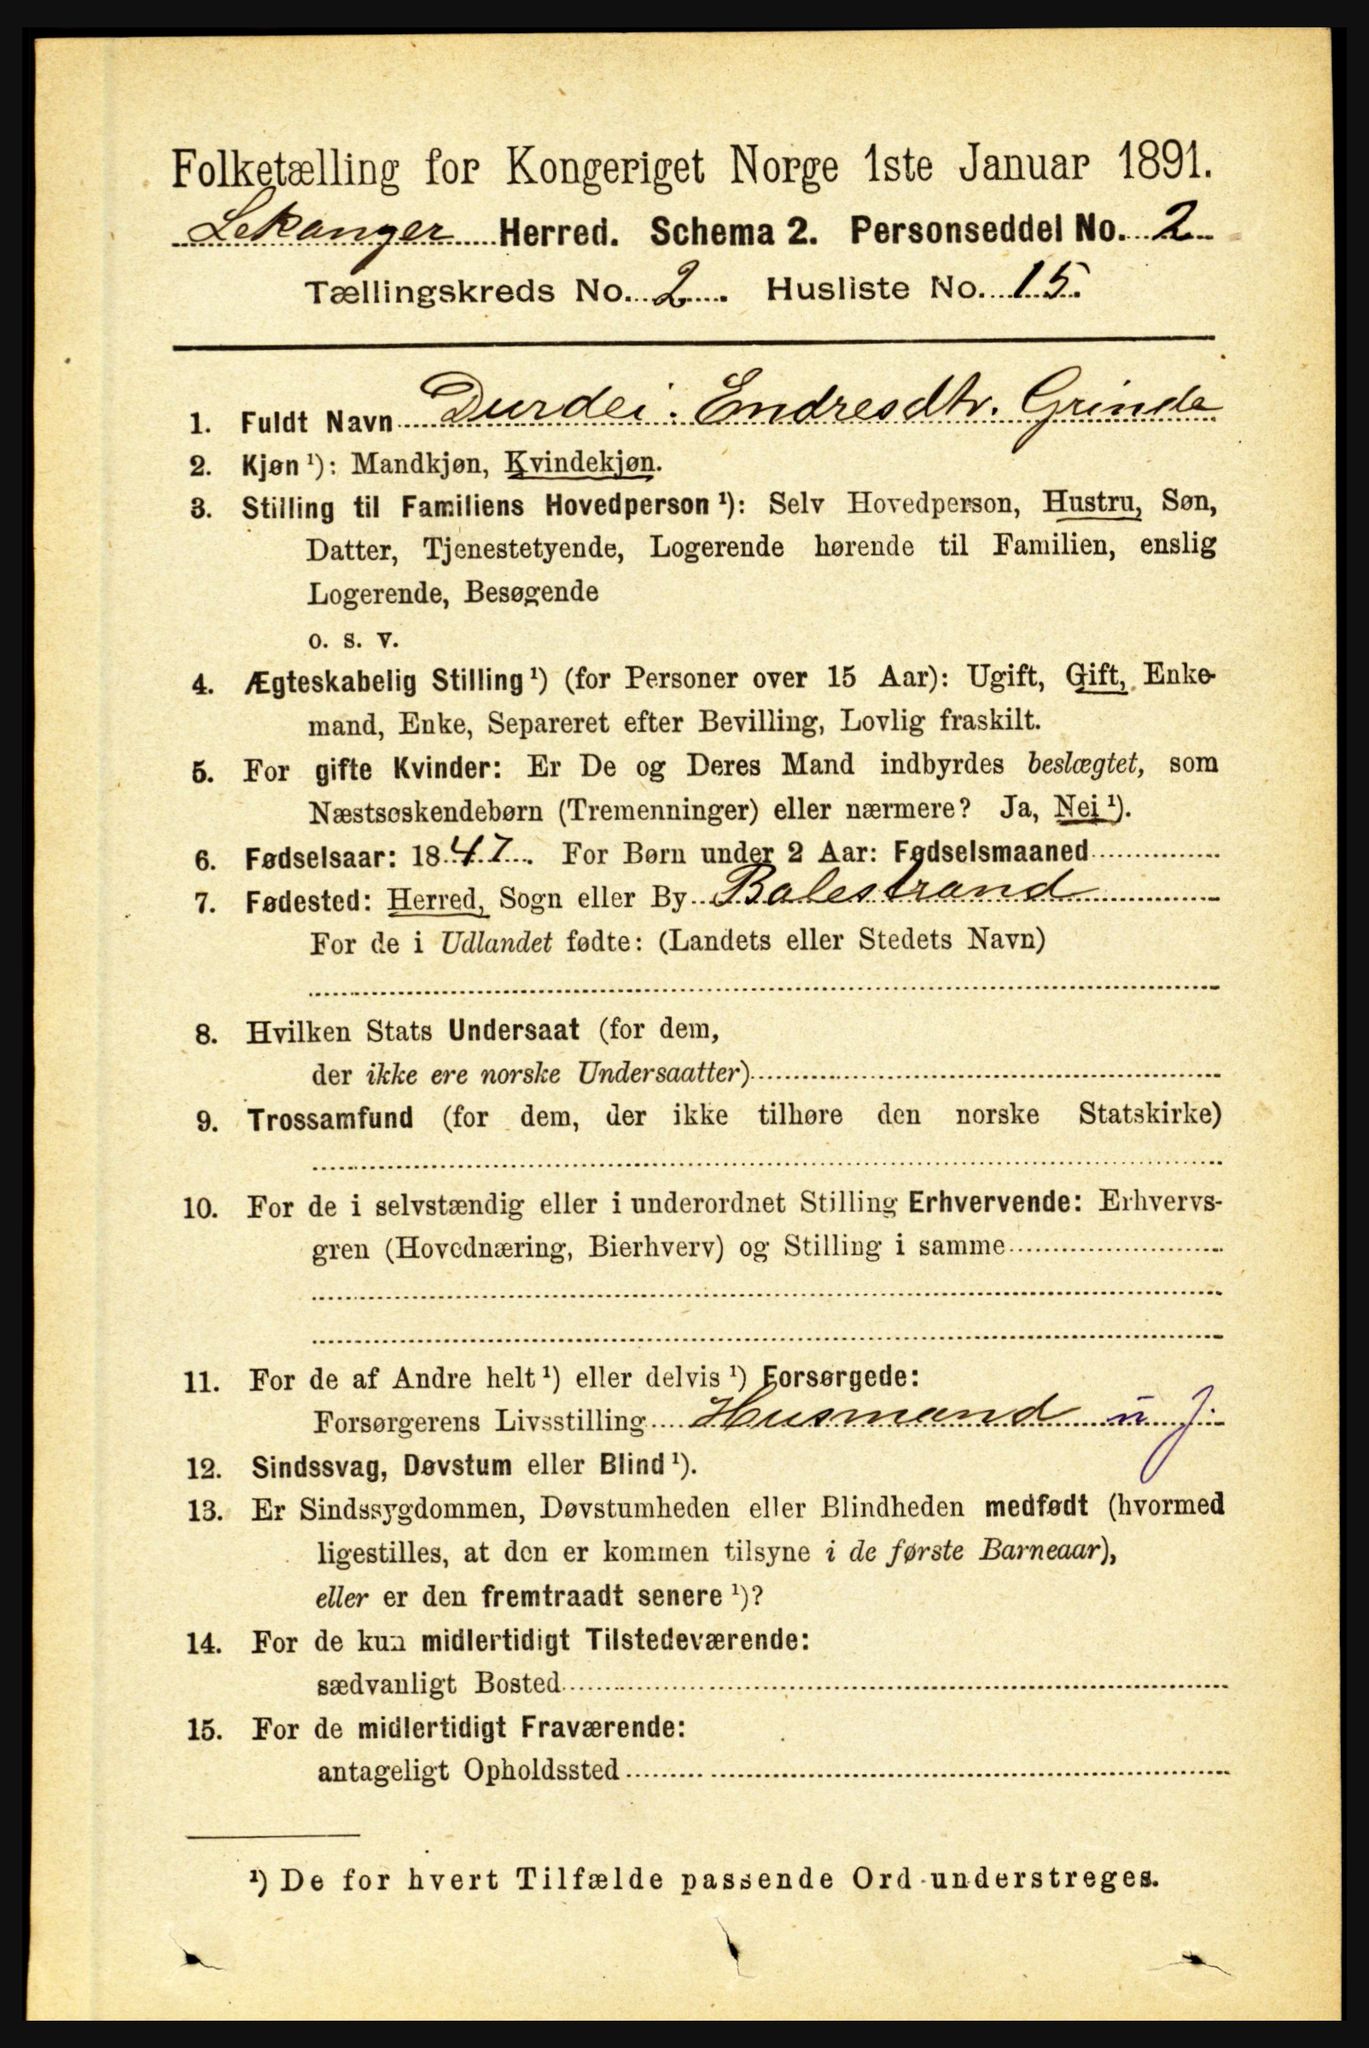 Folketælling for Kongeriget Norge 1ste Januar 1891.
Lekanger Herred. Schema 2. Personseddel No. 2
Tællingskreds No. 2. Husliste No. 15.
1. Fuldt Navn Durdei Endresdtr. Grinde
2. Kjøn ¹): Mandkjøn, Kvindekjøn.
3. Stilling til Familiens Hovedperson ¹): Selv Hovedperson, Hustru, Søn,
Datter, Tjenestetyende, Logerende hørende til Familien, enslig
Logerende, Besøgende
o. s. v.
4. Ægteskabelig Stilling ¹) (for Personer over 15 Aar): Ugift, Gift, Enke-
mand, Enke, Separeret efter Bevilling, Lovlig fraskilt.
5. For gifte Kvinder: Er De og Deres Mand indbyrdes beslægtet, som
Næstsøskendebørn (Tremenninger) eller nærmere? Ja, Nei ¹).
6. Fødselsaar: 1847. For Børn under 2 Aar: Fødselsmaaned
7. Fødested: Herred, Sogn eller By Balestrand
For de i Udlandet fødte: (Landets eller Stedets Navn)
8. Hvilken Stats Undersaat (for dem,
der ikke ere norske Undersaatter)
9. Trossamfund (for dem, der ikke tilhøre den norske Statskirke)
10. For de i selvstændig eller i underordnet Stilling Erhvervende: Erhvervs-
gren (Hovednæring, Bierhverv) og Stilling i samme
11. For de af Andre helt ¹) eller delvis ¹) Forsørgede:
Forsørgerens Livsstilling Husmand u. J.
12. Sindssvag, Døvstum eller Blind ¹).
13. Er Sindssygdommen, Døvstumheden eller Blindheden medfødt (hvormed
ligestilles, at den er kommen tilsyne i de første Barneaar),
eller er den fremtraadt senere ¹)?
14. For de kun midlertidigt Tilstedeværende:
sædvanligt Bosted
15. For de midlertidigt Fraværende:
antageligt Opholdssted
¹) De for hvert Tilfælde passende Ord understreges.